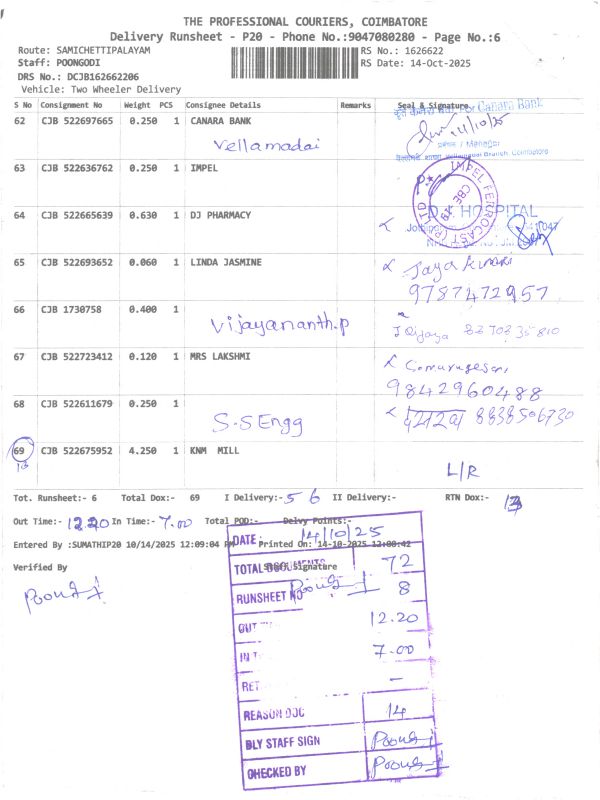 THE PROFESSIONAL COURIERS, COIMBATORE
Delivery Runsheet - P20 - Phone No.:9047080280 - Page No.:6
Route: SAMICHETTIPALAYAM RS No.: 1626622
Staff: POONGODI RS Date: 14-Oct-2025
DRS No.: DCJB162662206
Vehicle: Two Wheeler Delivery
S No Consignment No Weight PCS Consignee Details Remarks Seal & Signature
For Canara Bank
62 CJB 522697665 0.250 1 CANARA BANK
14/10/25
Vellamadai
प्रबंधक / Manager
Branch, Coimbatore
63 CJB 522636762 0.250 1 IMPEL
IMPEL FERROCAST (P) LTD
CBE-19
64 CJB 522665639 0.630 1 DJ PHARMACY
HOSPITAL
65 CJB 522693652 0.060 1 LINDA JASMINE
Jaya kumari
9787472957
66 CJB 1730758 0.400 1
Vijayananth.p
67 CJB 522723412 0.120 1 MRS LAKSHMI
9842960488
68 CJB 522611679 0.250 1
S-S Engg
8838506730
69 CJB 522675952 4.250 1 KNM MILL
L/R
Tot. Runsheet:- 6 Total Dox:- 69 I Delivery:- 56 II Delivery:- RTN Dox:- 13
Out Time:- 12.20 In Time:- 7.00 Total POD:- Delvy Points:-
Entered By :SUMATHIP20 10/14/2025 12:09:04 PM Printed On: 14-10-2025 12:08:42
Verified By Signature
DATE 14/10/25
TOTAL DOCUMENTS 72
RUNSHEET NO 8
OUT 12.20
IN T 7.00
RET -
REASON DOC 14
DLY STAFF SIGN
CHECKED BY